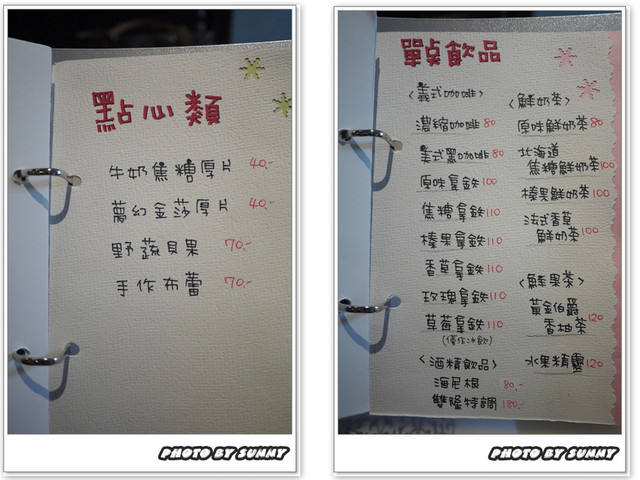 點心類
牛奶焦糖厚片 40.-
夢幻金莎厚片 40.-
野蔬貝果 70.-
手作布蕾 70.-
PHOTO BY SUMMY
單点飲品
〈義式咖啡〉
濃縮咖啡 80
美式黑咖啡 80
原味拿鉄 100
焦糖拿鉄 110
榛果拿鉄 110
香草拿鉄 110
玫瑰拿鉄 110
草莓拿鉄 110
(僅作冰飲)
〈酒精飲品〉
海尼根 80.-
雙隆特調 180.-
〈鮮奶茶〉
原味鮮奶茶 80
北海道
焦糖鮮奶茶 100
榛果鮮奶茶 100
法式香草
鮮奶茶 100
〈鮮果茶〉
黃金伯爵
香柚茶 120
水果精靈 120
PHOTO BY SUMMY